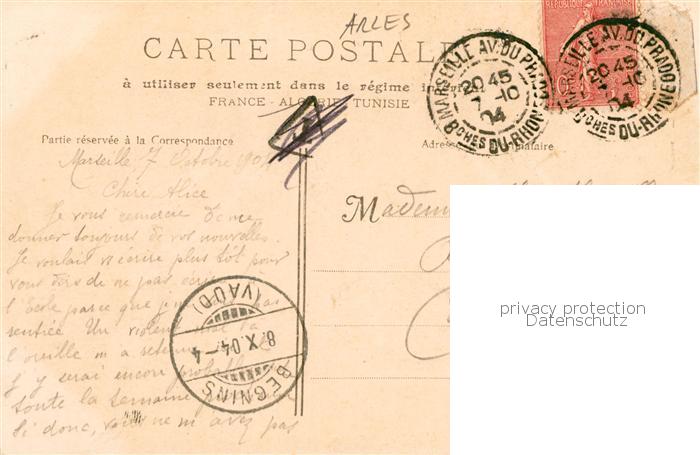 ARLES
CARTE POSTALE
à utiliser seulement dans le régime intérieur
FRANCE - ALGERIE - TUNISIE
RÉPUBLIQUE FRANÇAISE
MARSEILLE AV. DU PRADO
20 45
7 -10
04
BCHES DU-RHONE
MARSEILLE AV. DU PRADO
20 45
7 -10
04
BCHES DU-RHONE
Partie réservée à la Correspondance
Adresse du destinataire
Marseille 7 Octobre 190
Chère Alice
Je vous remercie de me
donner toujours de vos nouvelles.
Je voulait écrire plus tôt pour
vous dire de ne pas
l'Ecole parce que pas
rentrée Un violent
l'oreille m a
j'y serai encore
toute la semaine
Si donc, vous ne m avez pas
Madem
BEGNINS
8.X.04-4
(VAUD)
privacy protection
Datenschutz